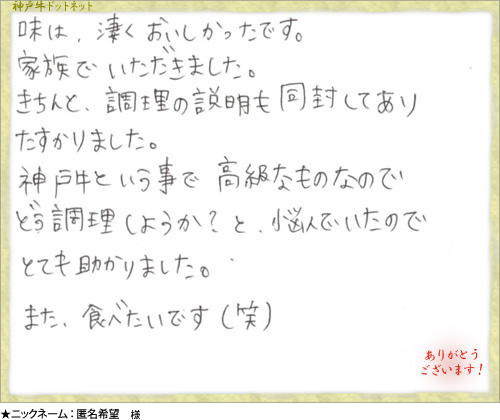 神戸牛ドットネット
味は、凄くおいしかったです。
家族でいただきました。
きちんと、調理の説明も同封してあり
たすかりました。
神戸牛という事で高級なものなので
どう調理しようか?と、悩んでいたので
とても助かりました。
また、食べたいです(笑)
ありがとう
ございます!
★ニックネーム:匿名希望 様